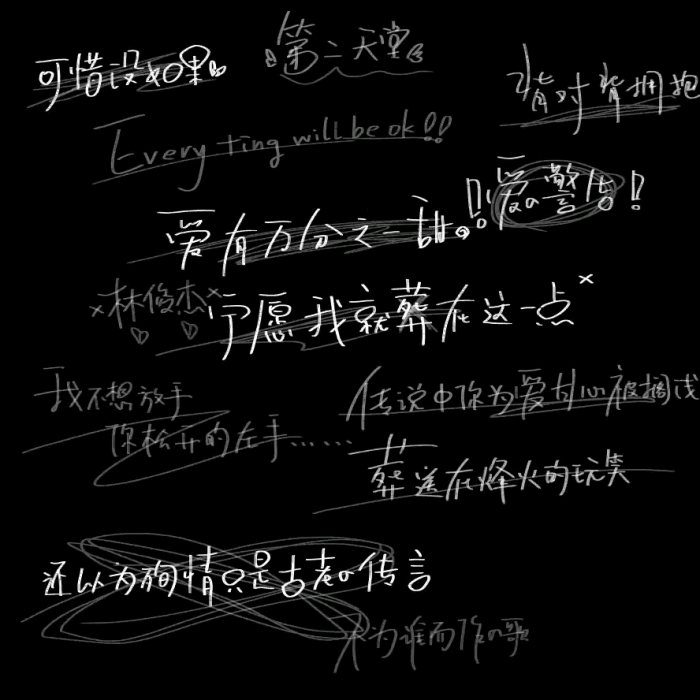 可惜没如果
第二天堂
背对背拥抱
Every ting will be ok!!
爱の警告!
爱有万分之一甜。!!
×林俊杰×
宁愿我就葬在这一点×
我不想放手
你松开的左手……
传说中你为爱甘心被搁浅
葬送在烽火的玩笑
还以为殉情只是古老の传言
不为谁而作の歌